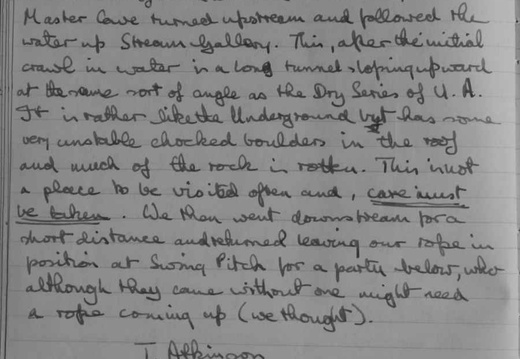 Master Cave turned upstream and followed the
water up Stream Gallery. This, after the initial
crawl in water is a long tunnel sloping upward
at the same sort of angle as the Dry Series of U. A.
It is rather like the Underground but has some
very unstable chocked boulders in the roof
and much of the rock is rotten. This is not
a place to be visited often and, care must
be taken. We then went downstream for a
short distance and returned leaving our rope in
position at Swing Pitch for a party below, who
although they came without one might need
a rope coming up (we thought).
T Atkinson